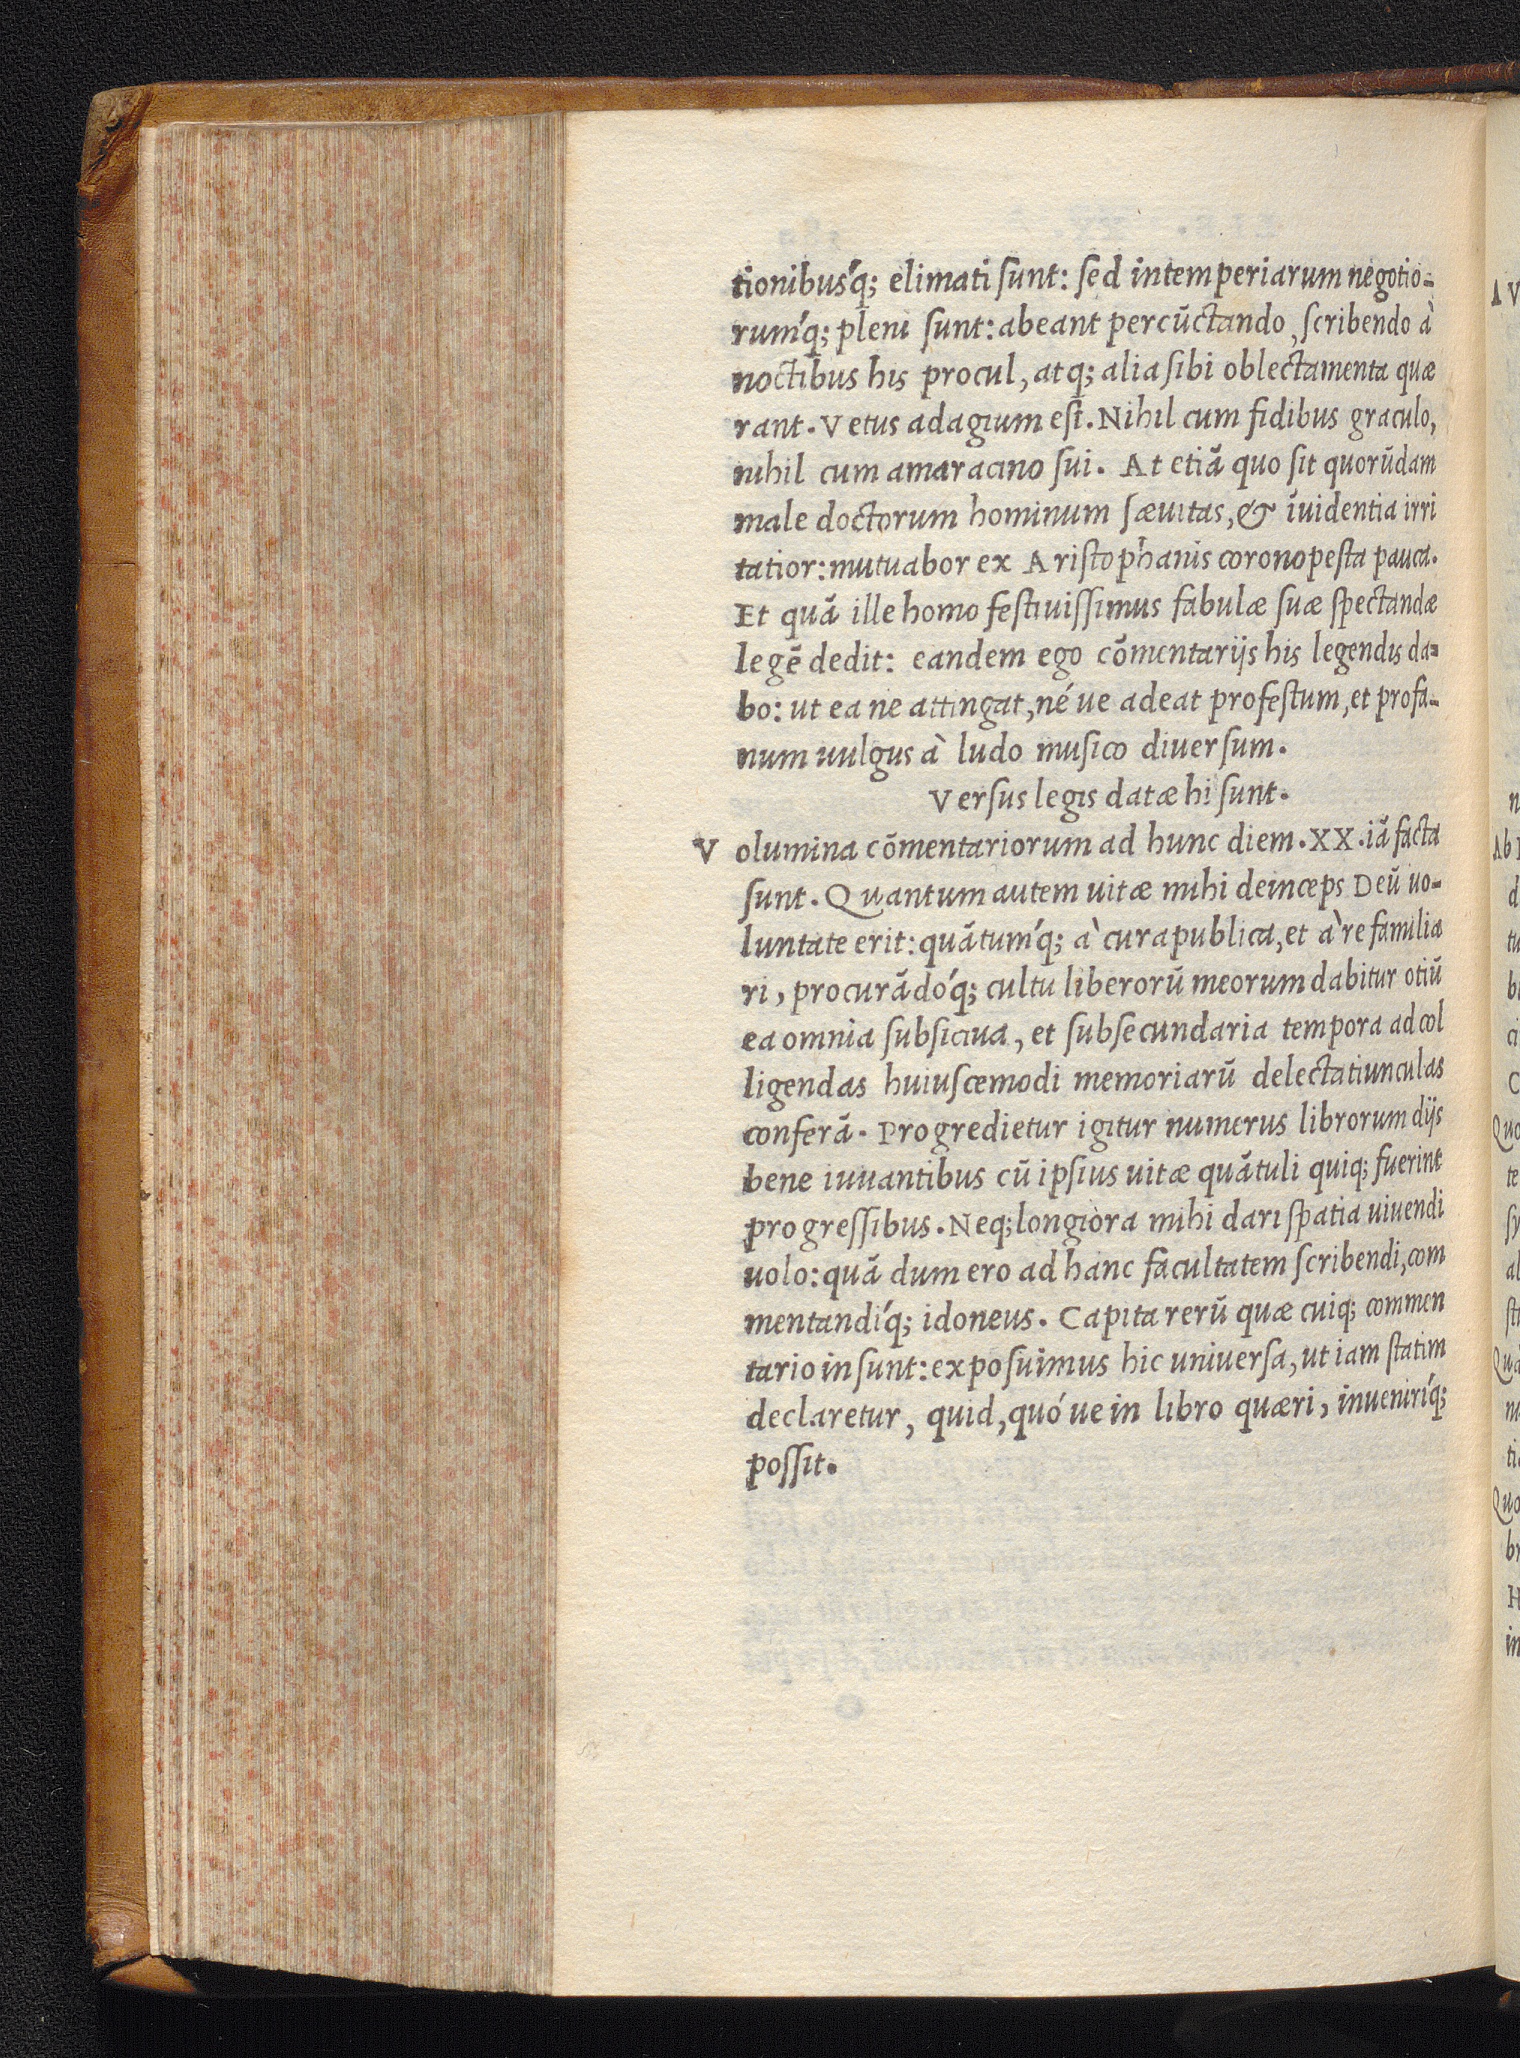 tionibus'q; elimati sunt: sed intemperiarum negotio-
rum'q; pleni sunt: abeant percũctando, scribendo à
noctibus his procul, atq; alia sibi oblectamenta quæ
rant. Vetus adagium est. Nihil cum fidibus graculo,
nihil cum amaracino sui. At etiã quo sit quorũdam
male doctorum hominum sæuitas, & ĩuidentia irri
tatior: mutuabor ex Aristophanis coronopesta pauca.
Et quã ille homo festiuissimus fabulæ suæ spectandæ
legẽ dedit: eandem ego cõmentarijs his legendis da-
bo: ut ea ne attingat, né ue adeat profestum, et profa-
num uulgus à ludo musico diuersum.
Versus legis datæ hi sunt.
Volumina cõmentariorum ad hunc diem. XX. iã facta
sunt. Quantum autem uitæ mihi deinceps Deũ uo-
luntate erit: quãtum'q; à cura publica, et à re familia
ri, procurãdó'q; cultu liberorũ meorum dabitur otiũ
ea omnia subsiciua, et subsecundaria tempora ad col
ligendas huiuscemodi memoriarũ delectatiunculas
conferã. Progredietur igitur numerus librorum dijs
bene iuuantibus cũ ipsius uitæ quãtuli quiq; fuerint
progressibus. Neq; longiora mihi dari spatia uiuendi
uolo: quã dum ero ad hanc facultatem scribendi, com
mentandí'q; idoneus. Capita rerũ quæ cuiq; commen
tario insunt: exposuimus hic uniuersa, ut iam statim
declaretur, quid, quó ue in libro quæri, inuenirí'q;
possit.